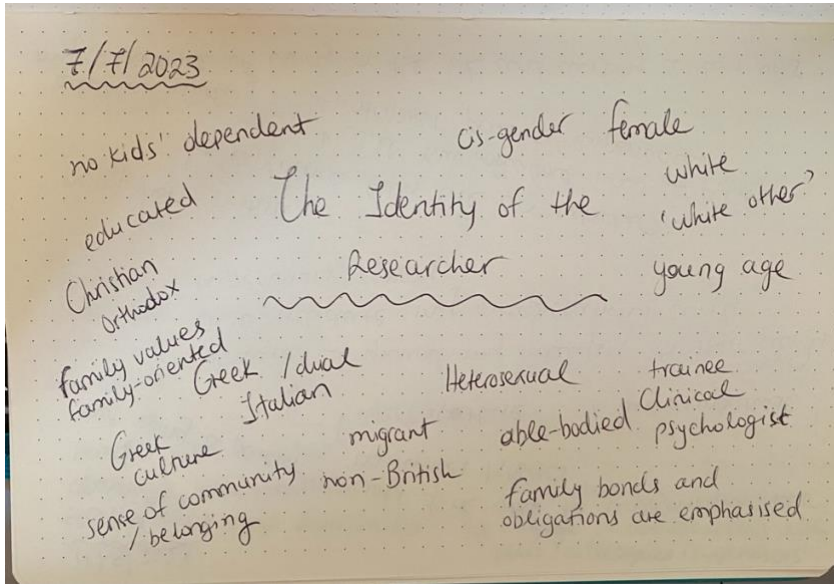 7/7/2023
no kids' dependent
cis-gender female
educated
The Identity of the
Researcher
white
'white other'
young age
Christian
Orthodox
family values
family-oriented
Greek / dual
Italian
Heterosexual
trainee
Clinical
psychologist
Greek
culture
migrant
non-British
able-bodied
sense of community
/ belonging
family bonds and
obligations are emphasised